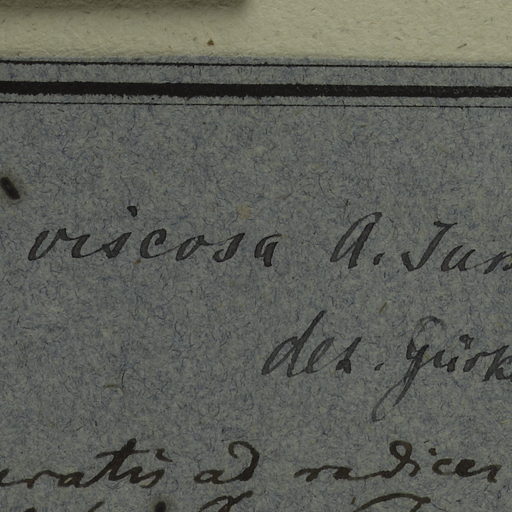 viscosa A. Juss
det. Gürk
eratis ad radices